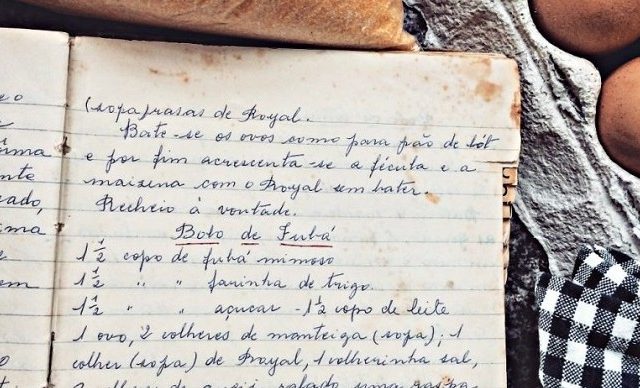 (sopa) rasas de Royal.
Bate-se os ovos como para pão de lót
e por fim acrescenta-se a fécula e a
maizena com o Royal sem bater.
Recheio à vontade.
Bolo de Fubá
1 1/2 copo de fubá mimoso
1 1/2 " " farinha de trigo.
1 1/2 " " açucar - 1 1/2 copo de leite
1 ovo, 2 colheres de manteiga (sopa); 1
colher (sopa) de Royal, 1 colherinha sal,
ralado uma